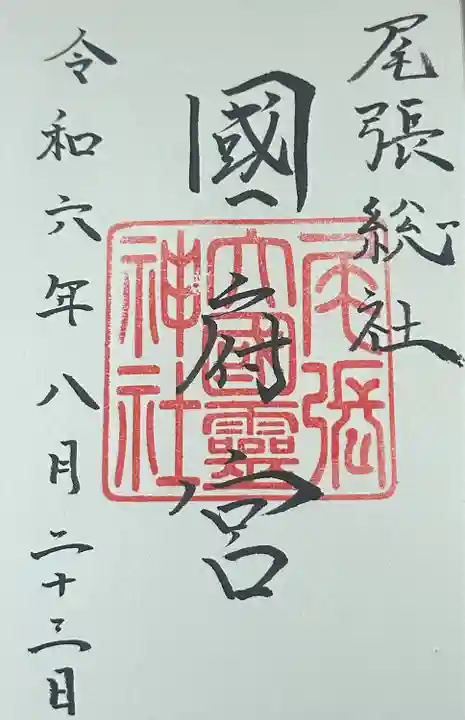 尾張総社
國府宮
尾張大國靈神社
令和六年八月二十三日